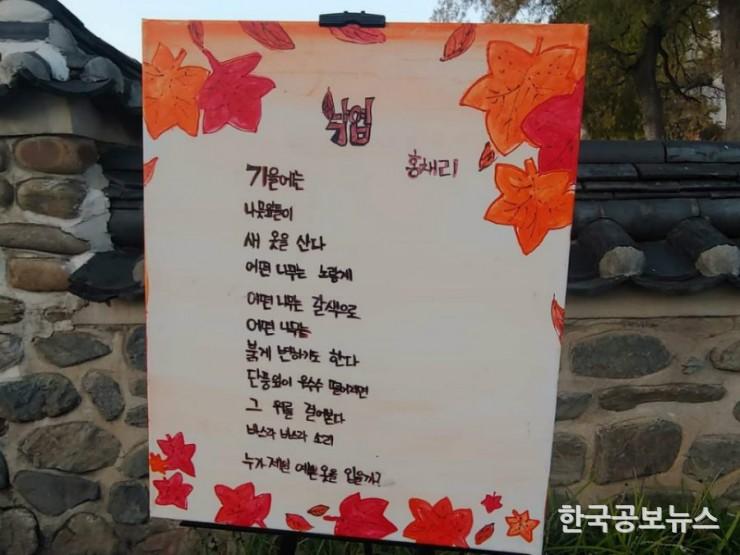 낙엽
홍채리
가을에는
나뭇잎들이
새 옷을 산다
어떤 나무는 노랗게
어떤 나무는 갈색으로
어떤 나무는
붉게 변하기도 한다
단풍잎이 우수수 떨어지면
그 위를 걸어본다
바스락 바스락 소리
누가 제일 예쁜 옷을 입을까?
한국공보뉴스